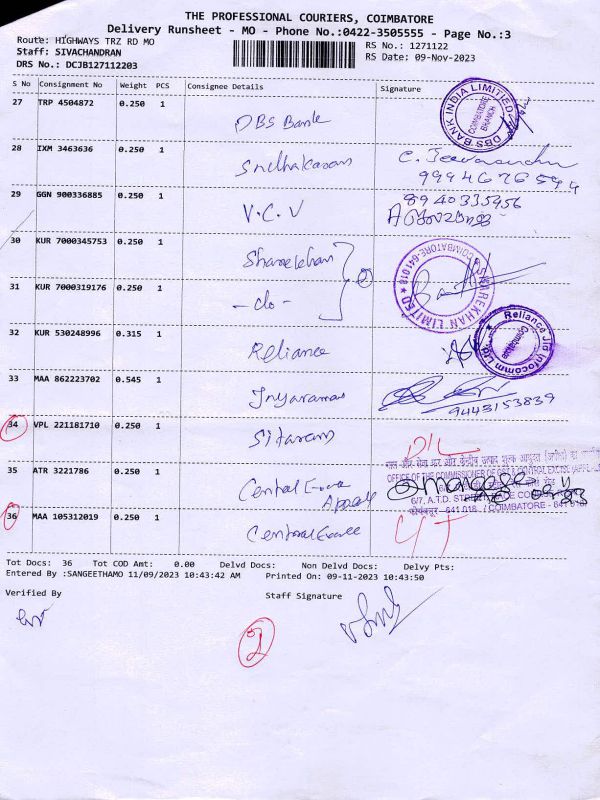 THE PROFESSIONAL COURIERS, COIMBATORE
Delivery Runsheet - MO - Phone No.:0422-3505555 - Page No.:3
Route: HIGHWAYS TRZ RD MO
Staff: SIVACHANDRAN
DRS No.: DCJB127112203
RS No.: 1271122
RS Date: 09-Nov-2023
S No Consignment No Weight PCS Consignee Details Signature
27 TRP 4504872 0.250 1 DBS Bank
DBS BANK INDIA LIMITED
COIMBATORE BRANCH
28 IXM 3463636 0.250 1 Sudhakaran
9994676594
29 GGN 900336885 0.250 1 V.C.V 8940335956
30 KUR 7000345753 0.250 1 Sharekhan
2
SHAREKHAN LIMITED
COIMBATORE-641018
31 KUR 7000319176 0.250 1 -do-
32 KUR 530248996 0.315 1 Reliance
Reliance Jio Infocomm Ltd.
33 MAA 862223702 0.545 1 9443153839
34 VPL 221181710 0.250 1 Sitaram D/L
35 ATR 3221786 0.250 1 Central Excise Appeals
OFFICE OF THE COMMISSIONER OF GST & CENTRAL EXCISE
6/7, A.T.D. STREET
641 018 / COIMBATORE - 641 018
36 MAA 105312019 0.250 1 Central Excise
Tot Docs: 36 Tot COD Amt: 0.00 Delvd Docs: Non Delvd Docs: Delvy Pts:
Entered By :SANGEETHAMO 11/09/2023 10:43:42 AM Printed On: 09-11-2023 10:43:50
Verified By Staff Signature
2